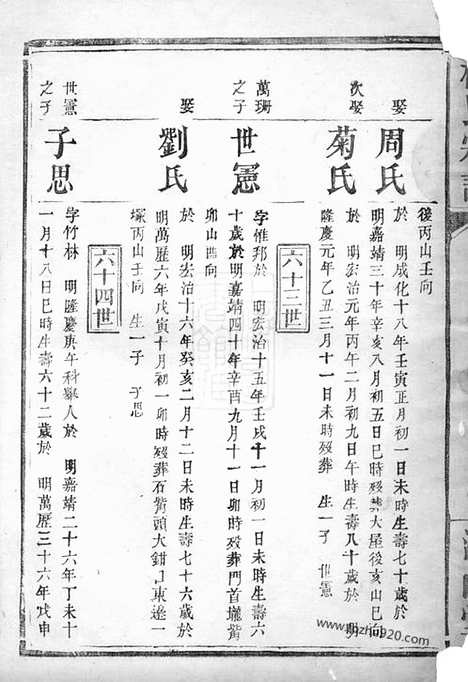 後丙山壬向
娶
周氏
於 明成化十八年壬寅正月初一日未時生壽七十歲於
明嘉靖三十年辛亥八月初五日巳時歿葬大屋後亥山巳向
次娶
菊氏
於 明宏治元年丙午二月初九日午時生壽八十歲於 明
隆慶元年乙丑三月十一日未時歿葬 生一子 世憲
六十三世
萬珊
之子
世憲
字惟邦於 明宏治十五年壬戌十一月初一日未時生壽六
十歲於明嘉靖四十年辛酉九月十一日卯時歿葬門首壠
卯山酉向
娶
劉氏
於 明宏治十六年癸亥二月十二日未時生壽七十六歲於
明萬歷六年戊寅十月初一卯時歿葬石觜頭大鉗口東邊一
塚丙山壬向 生一子 子思
六十四世
世憲
之子
子思
字竹林 明隆慶庚午科舉人於 明嘉靖二十六年丁未十
一月十八日巳時生壽六十二歲於 明萬歷三十六年戊申
www.jiazhu920.com